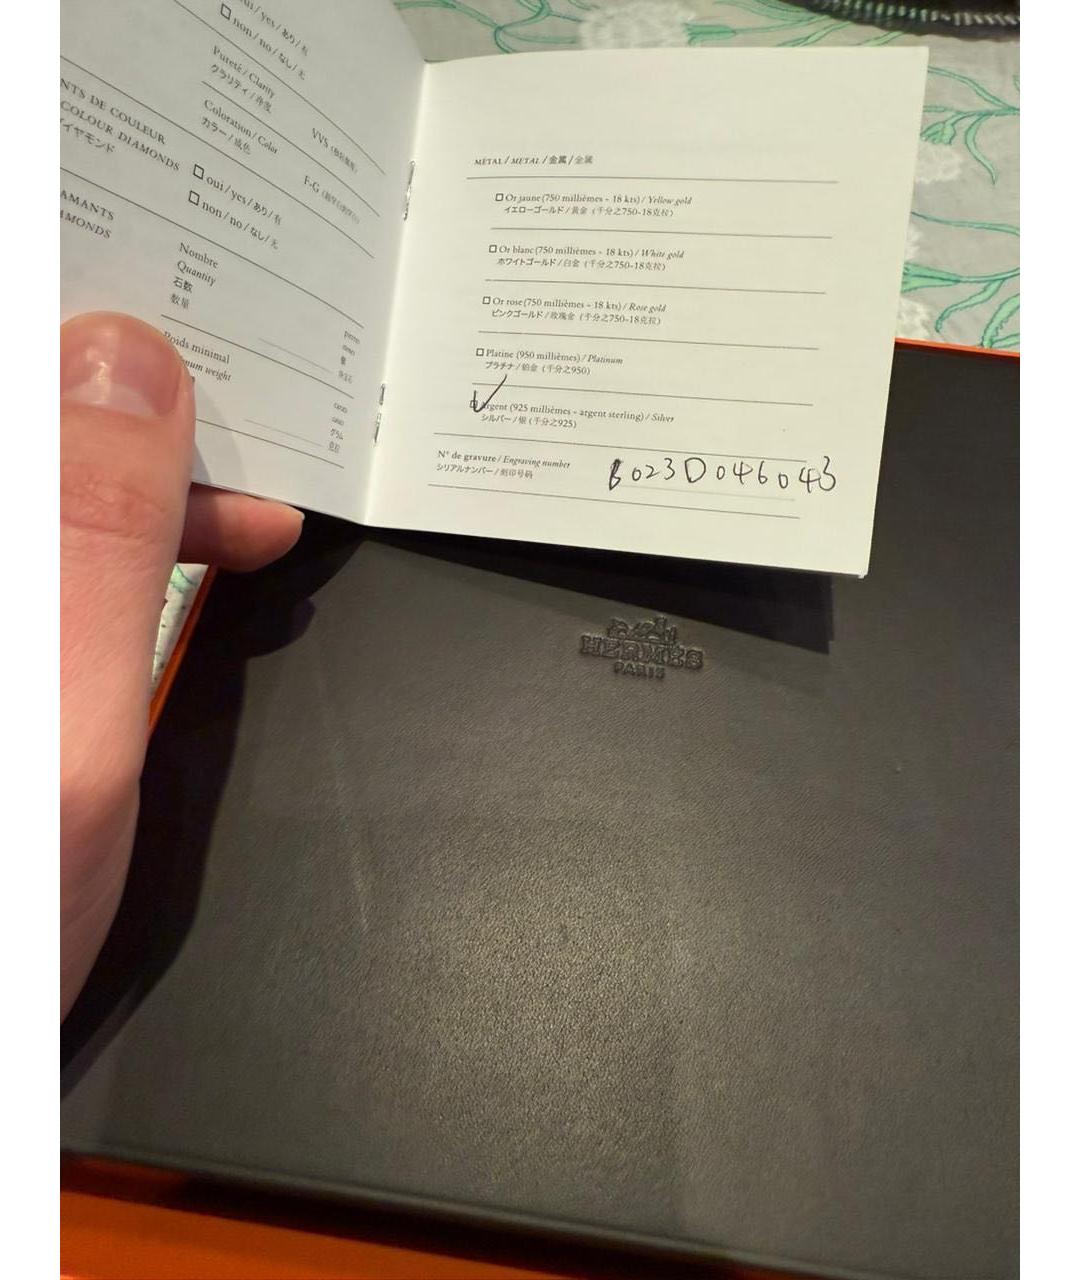 oui / yes / あり / 有
non / no / なし / 无
Pureté / Clarity
クラリティ / 净度
VVS
Coloration / Color
カラー / 成色
F-G
NTS DE COULEUR
COLOUR DIAMONDS
イヤモンド
oui / yes / あり / 有
non / no / なし / 无
AMANTS
MONDS
Nombre
Quantity
石数
数量
Poids minimal
weight
グラム
克拉
MÉTAL / METAL / 金属 / 金属
Or jaune (750 millièmes - 18 kts) / Yellow gold
イエローゴールド / 黄金 (千分之750-18克拉)
Or blanc (750 millièmes - 18 kts) / White gold
ホワイトゴールド / 白金 (千分之750-18克拉)
Or rose (750 millièmes - 18 kts) / Rose gold
ピンクゴールド / 玫瑰金 (千分之750-18克拉)
Platine (950 millièmes) / Platinum
プラチナ / 铂金 (千分之950)
Argent (925 millièmes - argent sterling) / Silver
シルバー / 银 (千分之925)
N° de gravure / Engraving number
シリアルナンバー / 刻印号码
B023D046043
HERMÈS
PARIS